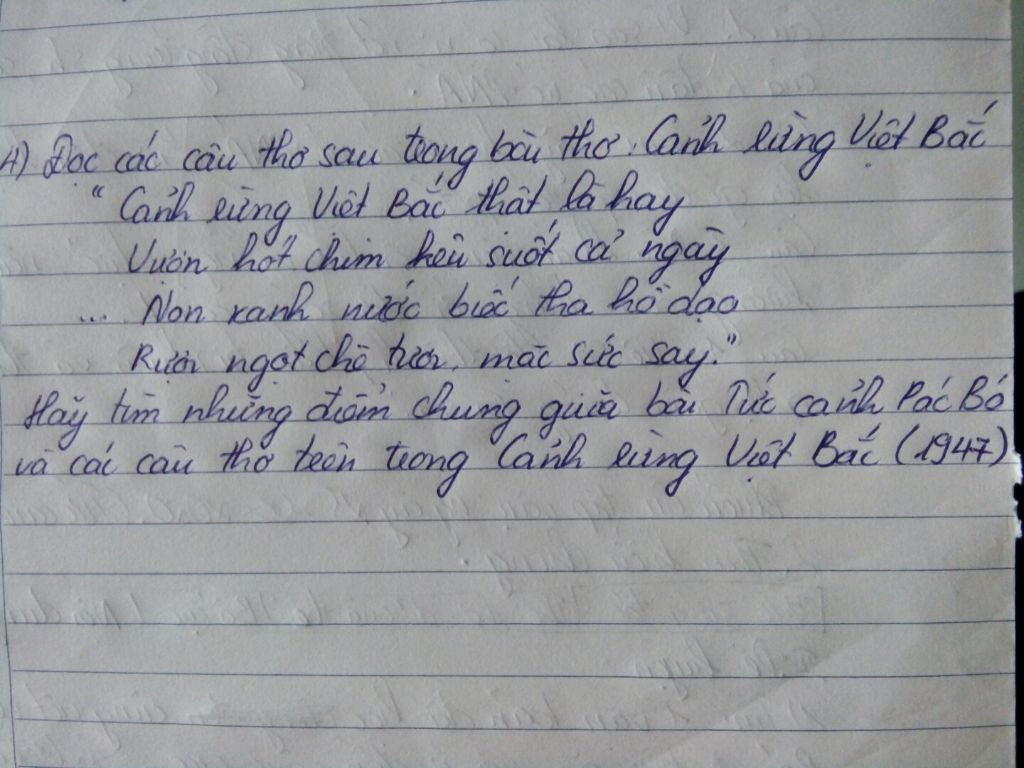 4) Đọc các câu thơ sau trong bài thơ: Cảnh rừng Việt Bắc
"Cảnh rừng Việt Bắc thật là hay
Vượn hót chim kêu suốt cả ngày
... Non xanh nước biếc tha hồ dạo
Rượu ngọt chè tươi, mặc sức say."
Hãy tìm những điểm chung giữa bài Tức cảnh Pác Bó
và các câu thơ trên trong Cảnh rừng Việt Bắc (1947)